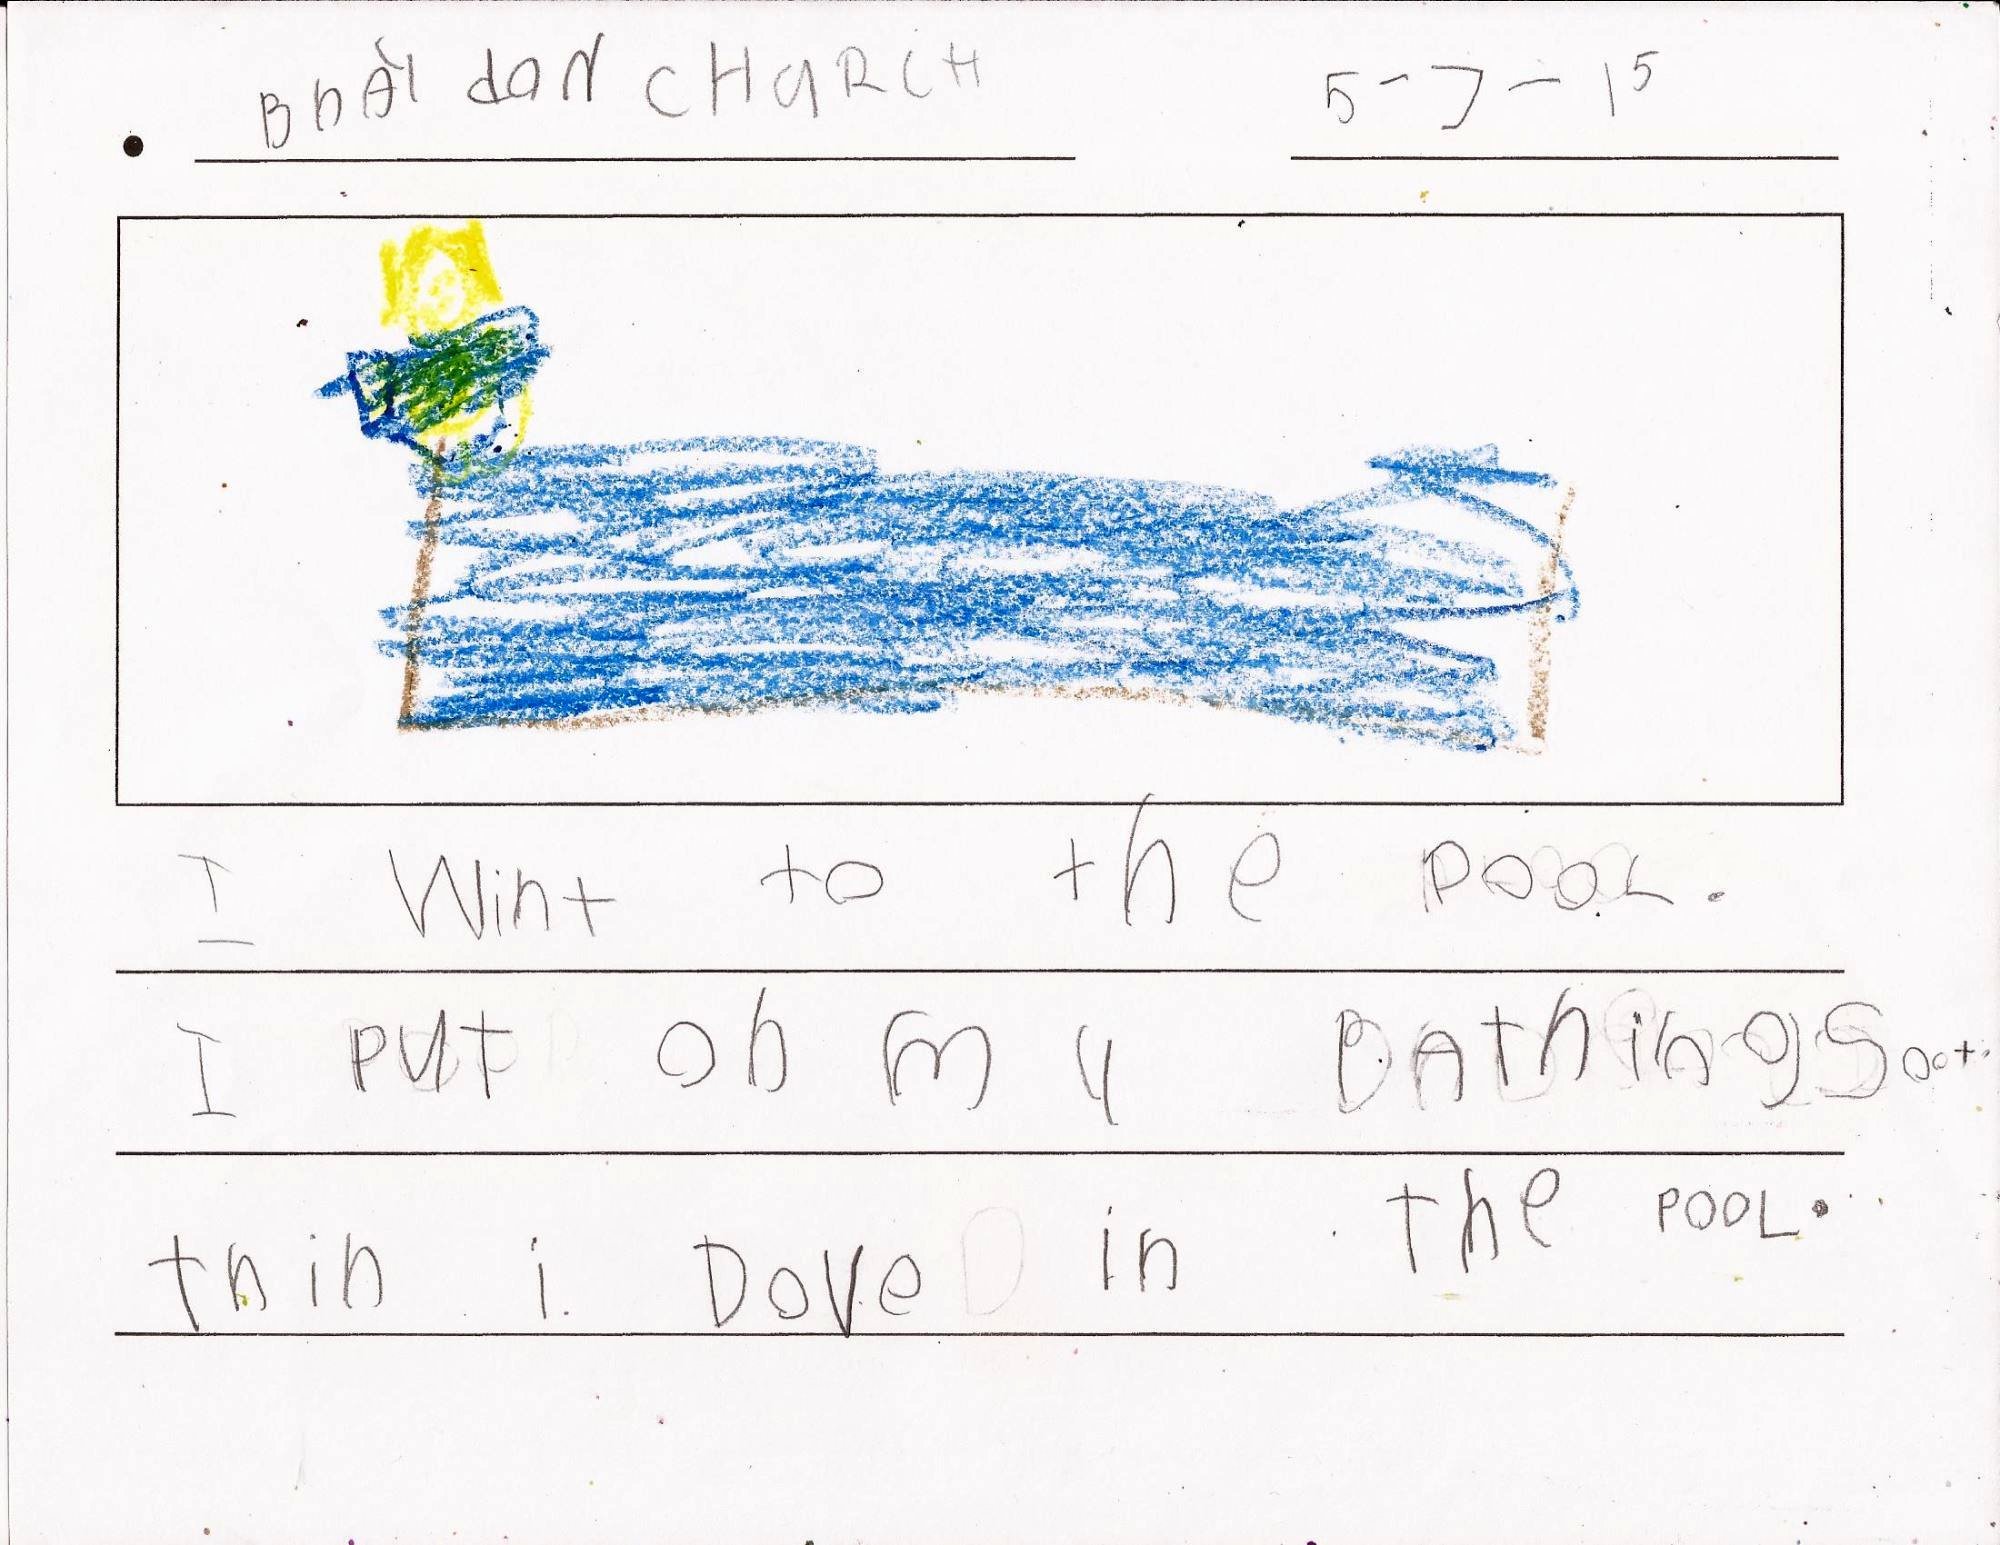 BRAidON CHURCH 5-7-15
I Wint to the POOL.
I PUt on my BAthing Soot.
thin i Dove in the POOL.